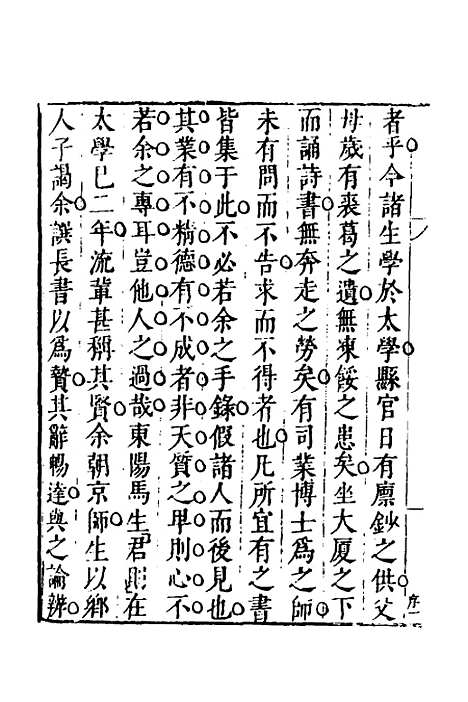 者乎今諸生學於太學縣官日有廪鈔之供父
母歲有裘葛之遺無凍餒之患矣坐大厦之下
而誦詩書無奔走之勞矣有司業博士為之師
未有問而不告求而不得者也凡所宜有之書
皆集于此不必若余之手錄假諸人而後見也
其業有不精德有不成者非天質之卑則心不
若余之專耳豈他人之過哉東陽馬生君則在
太學已二年流輩甚稱其賢余朝京師生以鄉
人子謁余譔長書以為贄其辭暢達與之論辨
序一